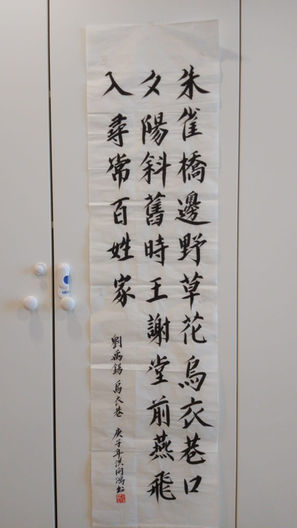 朱雀橋邊野草花烏衣巷口
夕陽斜舊時王謝堂前燕飛
入尋常百姓家
劉禹錫 烏衣巷 庚子年洪向陽書